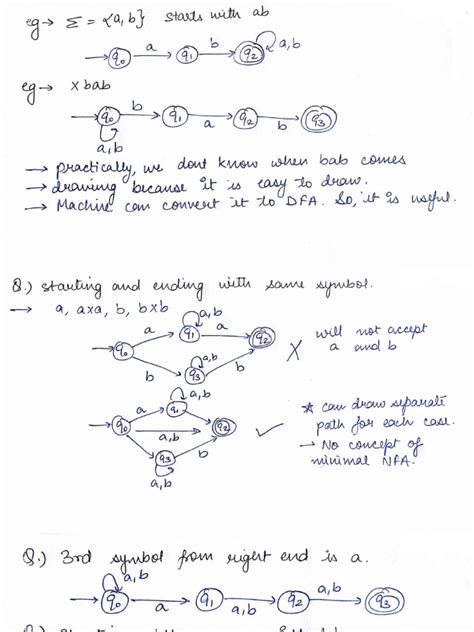 eg → Σ = {a, b} starts with ab
a b a,b
q0 q1 q2
eg → x bab
b a b
q0 q1 q2 q3
a,b
→ practically, we dont know when bab comes
→ drawing because it is easy to draw.
→ Machine can convert it to DFA. So, it is useful.
Q.) starting and ending with same symbol.
→ a, axa, b, bxb
a a,b a
q0 q1 q2
b a,b b
q3
X will not accept
a and b
a a,b a
q0 q1 q2
a,b
b q3 b
a,b
✓
* can draw separate
path for each case.
→ No concept of
minimal NFA.
Q.) 3rd symbol from right end is a.
a,b
q0 q1 q2 q3
a a,b a,b